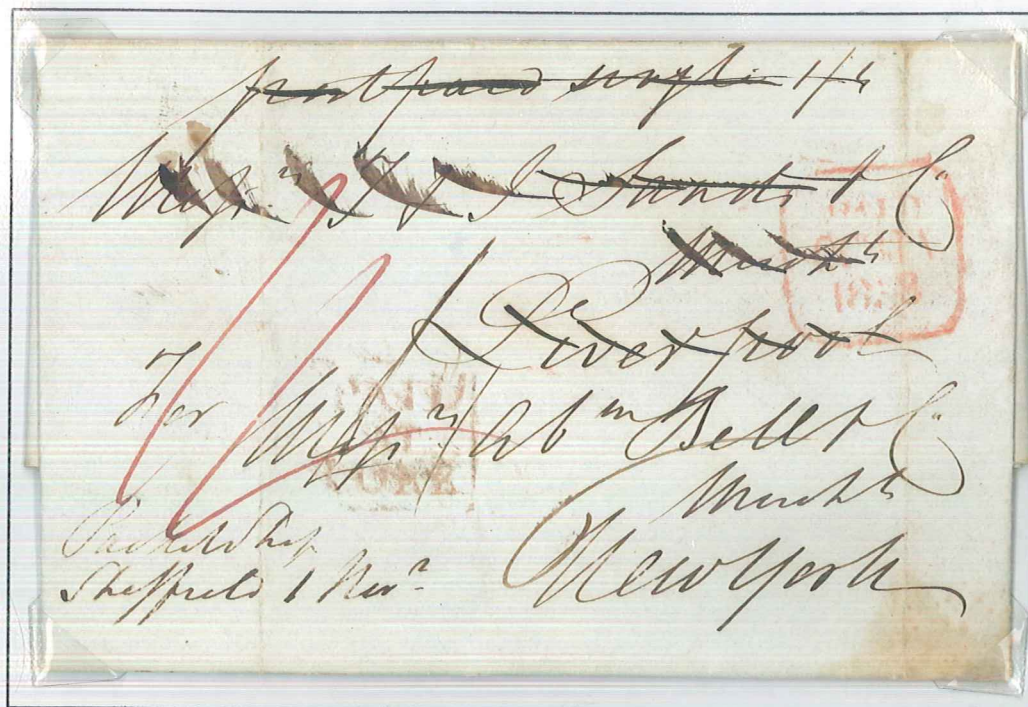 post paid single 1/4
Mess.rs T & J Sands & Co
Mercht.s
Liverpool
For Mess.rs Abm Bell & Co
Mercht.s
New York
Packet Ship
Sheffield 1 Nov.r
PAID
1838
SHIP
YORK